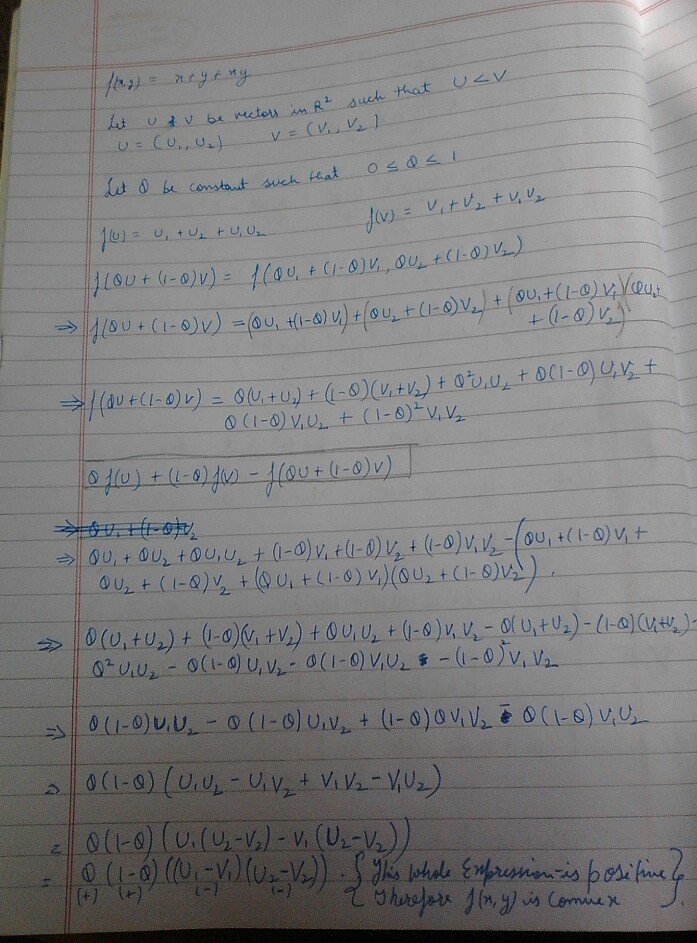 f(x,y) = x+y+xy
Let U & V be vectors in R² such that U < V
U = (U₁, U₂) V = (V₁, V₂)
Let Θ be constant such that 0 ≤ Θ ≤ 1
f(U) = U₁ + U₂ + U₁U₂ f(V) = V₁ + V₂ + V₁V₂
f(ΘU + (1-Θ)V) = f(ΘU₁ + (1-Θ)V₁, ΘU₂ + (1-Θ)V₂)
⇒ f(ΘU + (1-Θ)V) = (ΘU₁ + (1-Θ)V₁) + (ΘU₂ + (1-Θ)V₂) + (ΘU₁ + (1-Θ)V₁)(ΘU₂
+ (1-Θ)V₂)
⇒ f(ΘU + (1-Θ)V) = Θ(U₁+U₂) + (1-Θ)(V₁+V₂) + Θ²U₁U₂ + Θ(1-Θ)U₁V₂ +
Θ(1-Θ)V₁U₂ + (1-Θ)²V₁V₂
Θf(U) + (1-Θ)f(V) - f(ΘU + (1-Θ)V)
⇒ ΘU₁ + (1-Θ)V₂
⇒ ΘU₁ + ΘU₂ + ΘU₁U₂ + (1-Θ)V₁ + (1-Θ)V₂ + (1-Θ)V₁V₂ - (ΘU₁ + (1-Θ)V₁ +
ΘU₂ + (1-Θ)V₂ + (ΘU₁ + (1-Θ)V₁)(ΘU₂ + (1-Θ)V₂)).
⇒ Θ(U₁+U₂) + (1-Θ)(V₁+V₂) + ΘU₁U₂ + (1-Θ)V₁V₂ - Θ(U₁+U₂) - (1-Θ)(V₁+V₂) -
Θ²U₁U₂ - Θ(1-Θ)U₁V₂ - Θ(1-Θ)V₁U₂ - (1-Θ)²V₁V₂
⇒ Θ(1-Θ)U₁U₂ - Θ(1-Θ)U₁V₂ + (1-Θ)ΘV₁V₂ - Θ(1-Θ)V₁U₂
⇒ Θ(1-Θ)(U₁U₂ - U₁V₂ + V₁V₂ - V₁U₂)
= Θ(1-Θ)(U₁(U₂-V₂) - V₁(U₂-V₂))
= Θ(1-Θ)((U₁-V₁)(U₂-V₂)). {This whole Expression is positive}
(+) (+) (-) (-) {Therefore f(x,y) is convex}.